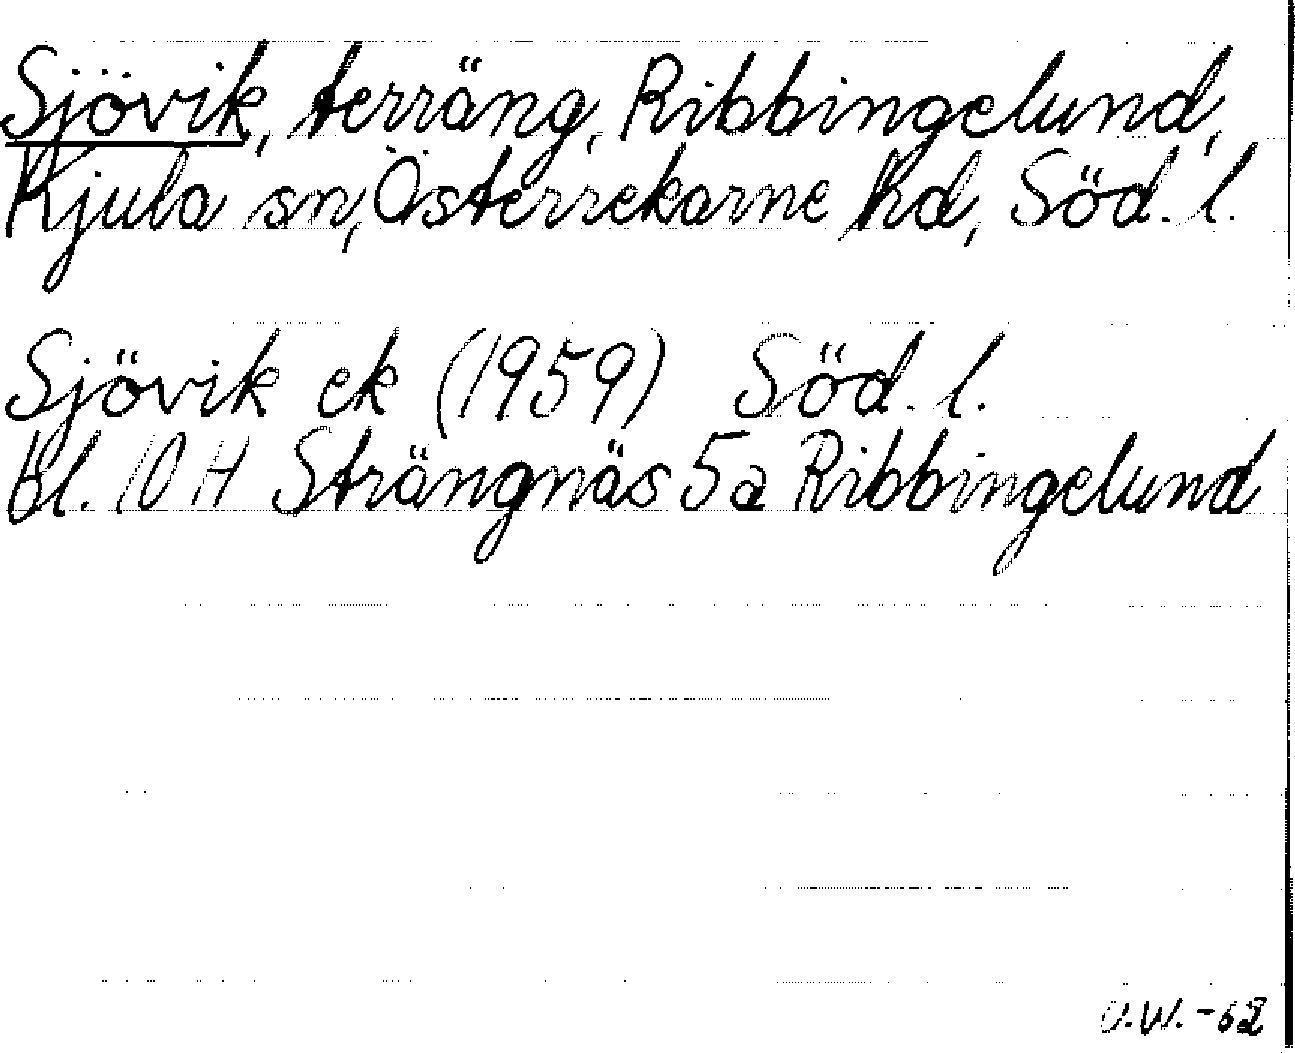 Sjövik, terräng, Ribbingelund,
Kjula sn, Österrekarne hd, Söd. l.
Sjövik ek (1959) Söd. l.
bl. 10 H Strängnäs 5a Ribbingelund
O.W. -62